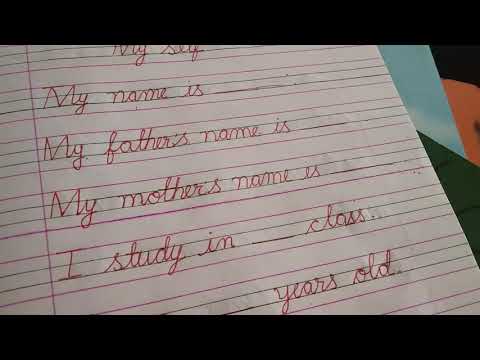 My self
My name is ____
My father's name is ____
My mother's name is ____
I study in ___ class.
____ years old.